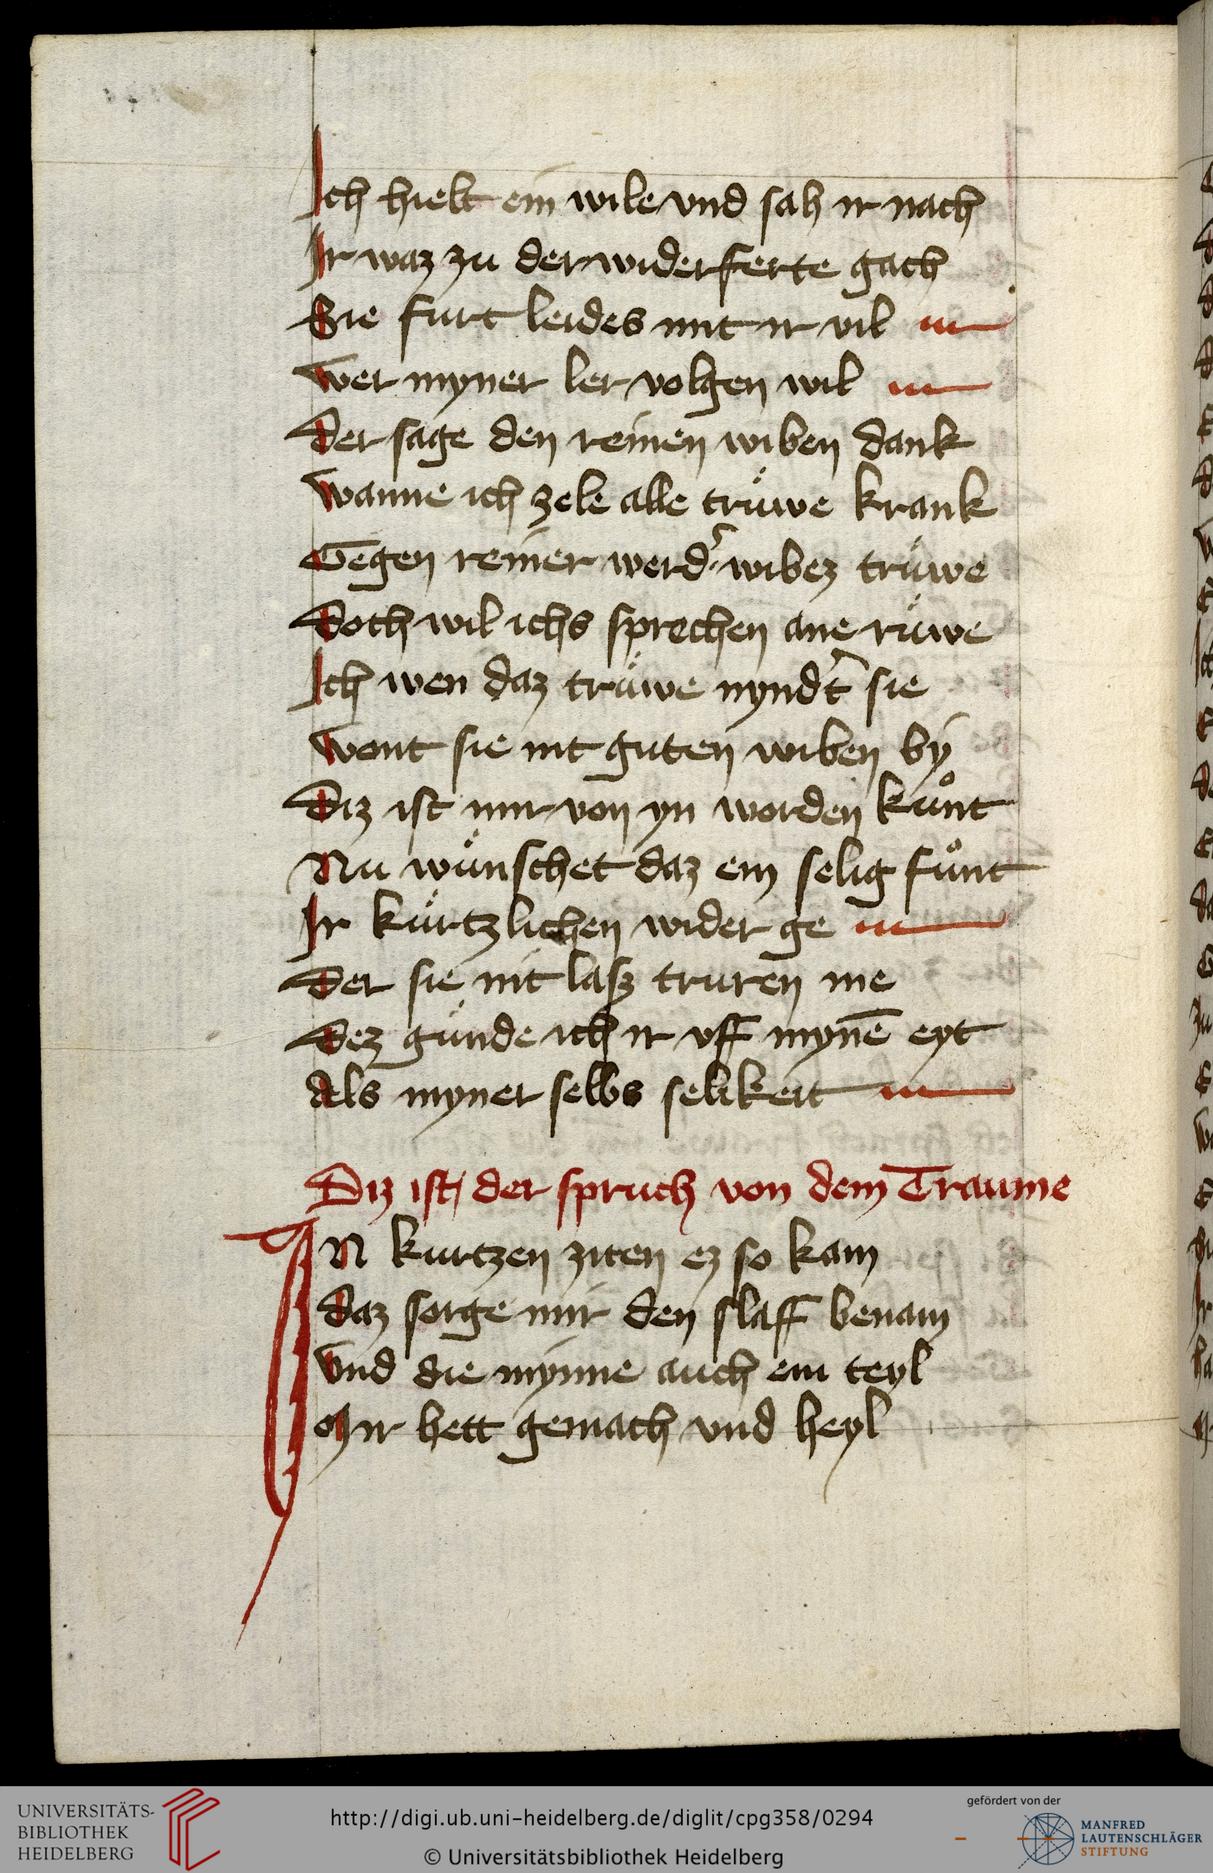 Ich hielt ein wile vnd sah ir nach
Ir waz zu der widerferte gach
Sie furt leides mit ir vil
Wer myner ler volgen wil
Der sage den reinen wiben dank
Wanne ich zele alle trüwe krank
Gegen reiner werd' wibez trüwe
Doch wil ichs sprechen ane rüwe
Ich wen daz trüwe nynd't sie
Wont sie nit guten wiben bÿ
Diz ist mir von yn worden kuͦnt
Nu wünschet daz ein selig fuͦnt
Ir kürtzlichen wider ge
Der sie nit lasz truren me
Dez günde ich ir vff mynē eyt
Als myner selbs selikeit
Diz ist der spruch von dem Traume
IN kurtzen ziten ez so kam
Daz sorge mir den slaff benam
Vnd die mynne auch ein teyl
Mir hett gemach vnd heyl
UNIVERSITÄTS-
BIBLIOTHEK
HEIDELBERG
http://digi.ub.uni-heidelberg.de/diglit/cpg358/0294
© Universitätsbibliothek Heidelberg
gefördert von der
MANFRED
LAUTENSCHLÄGER
STIFTUNG